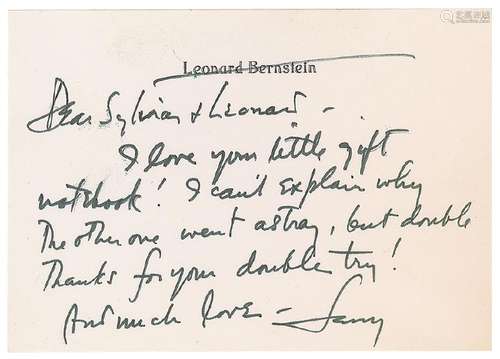 Leonard Bernstein
Dear Sylvia & Leonard -
I love your little gift
notebook! I can't explain why
the other one went astray, but double
Thanks for your double try!
And much love - Lenny